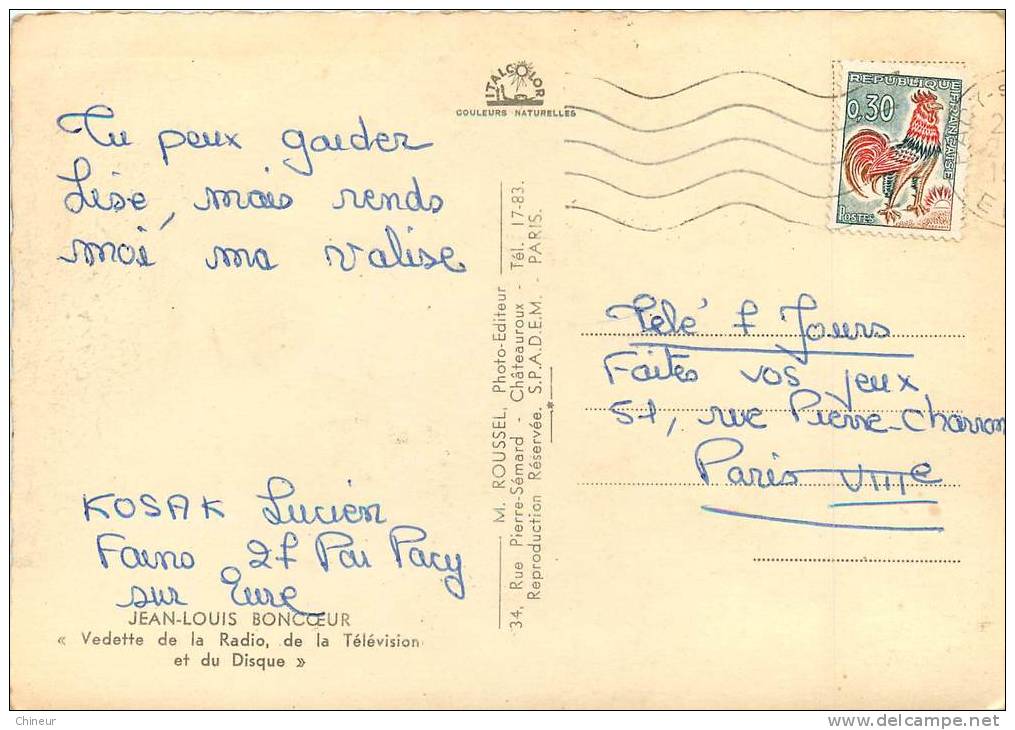 ITALCOLOR
COULEURS NATURELLES
REPUBLIQUE FRANÇAISE
0,30
POSTES
Tu peux garder
Lise, mais rends
moi ma valise
KOSAK Lucien
27 Pacy
sur Eure
JEAN-LOUIS BONCŒUR
« Vedette de la Radio, de la Télévision
et du Disque »
M. ROUSSEL, Photo-Editeur
34, Rue Pierre-Sémard - Châteauroux - Tél. 17-83.
Reproduction Réservée. S.P.A.D.E.M. - PARIS.
Télé 7 Jours
Faites vos jeux
51, rue Pierre-Charron
Paris VIIIe
Chineur
www.delcampe.net